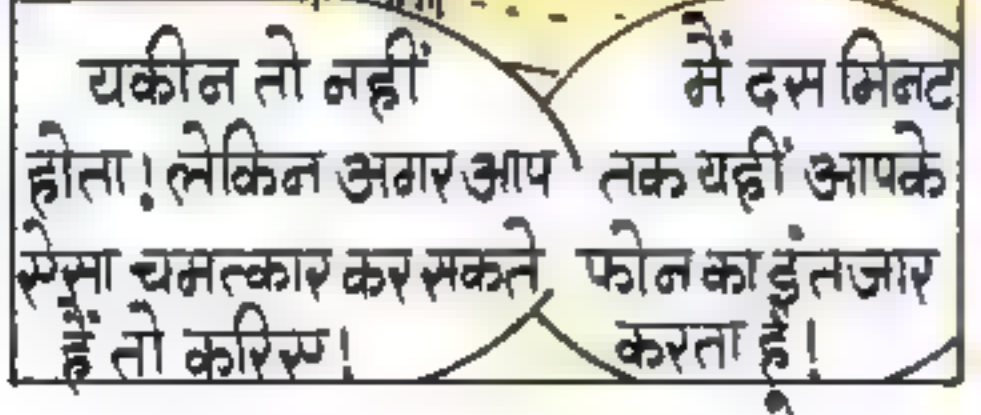 यकीन तो नहीं
होता! लेकिन अगर आप
ऐसा चमत्कार कर सकते
हैं तो करिए!
मैं दस मिनट
तक यहीं आपके
फोन का इंतजार
करता हूं!